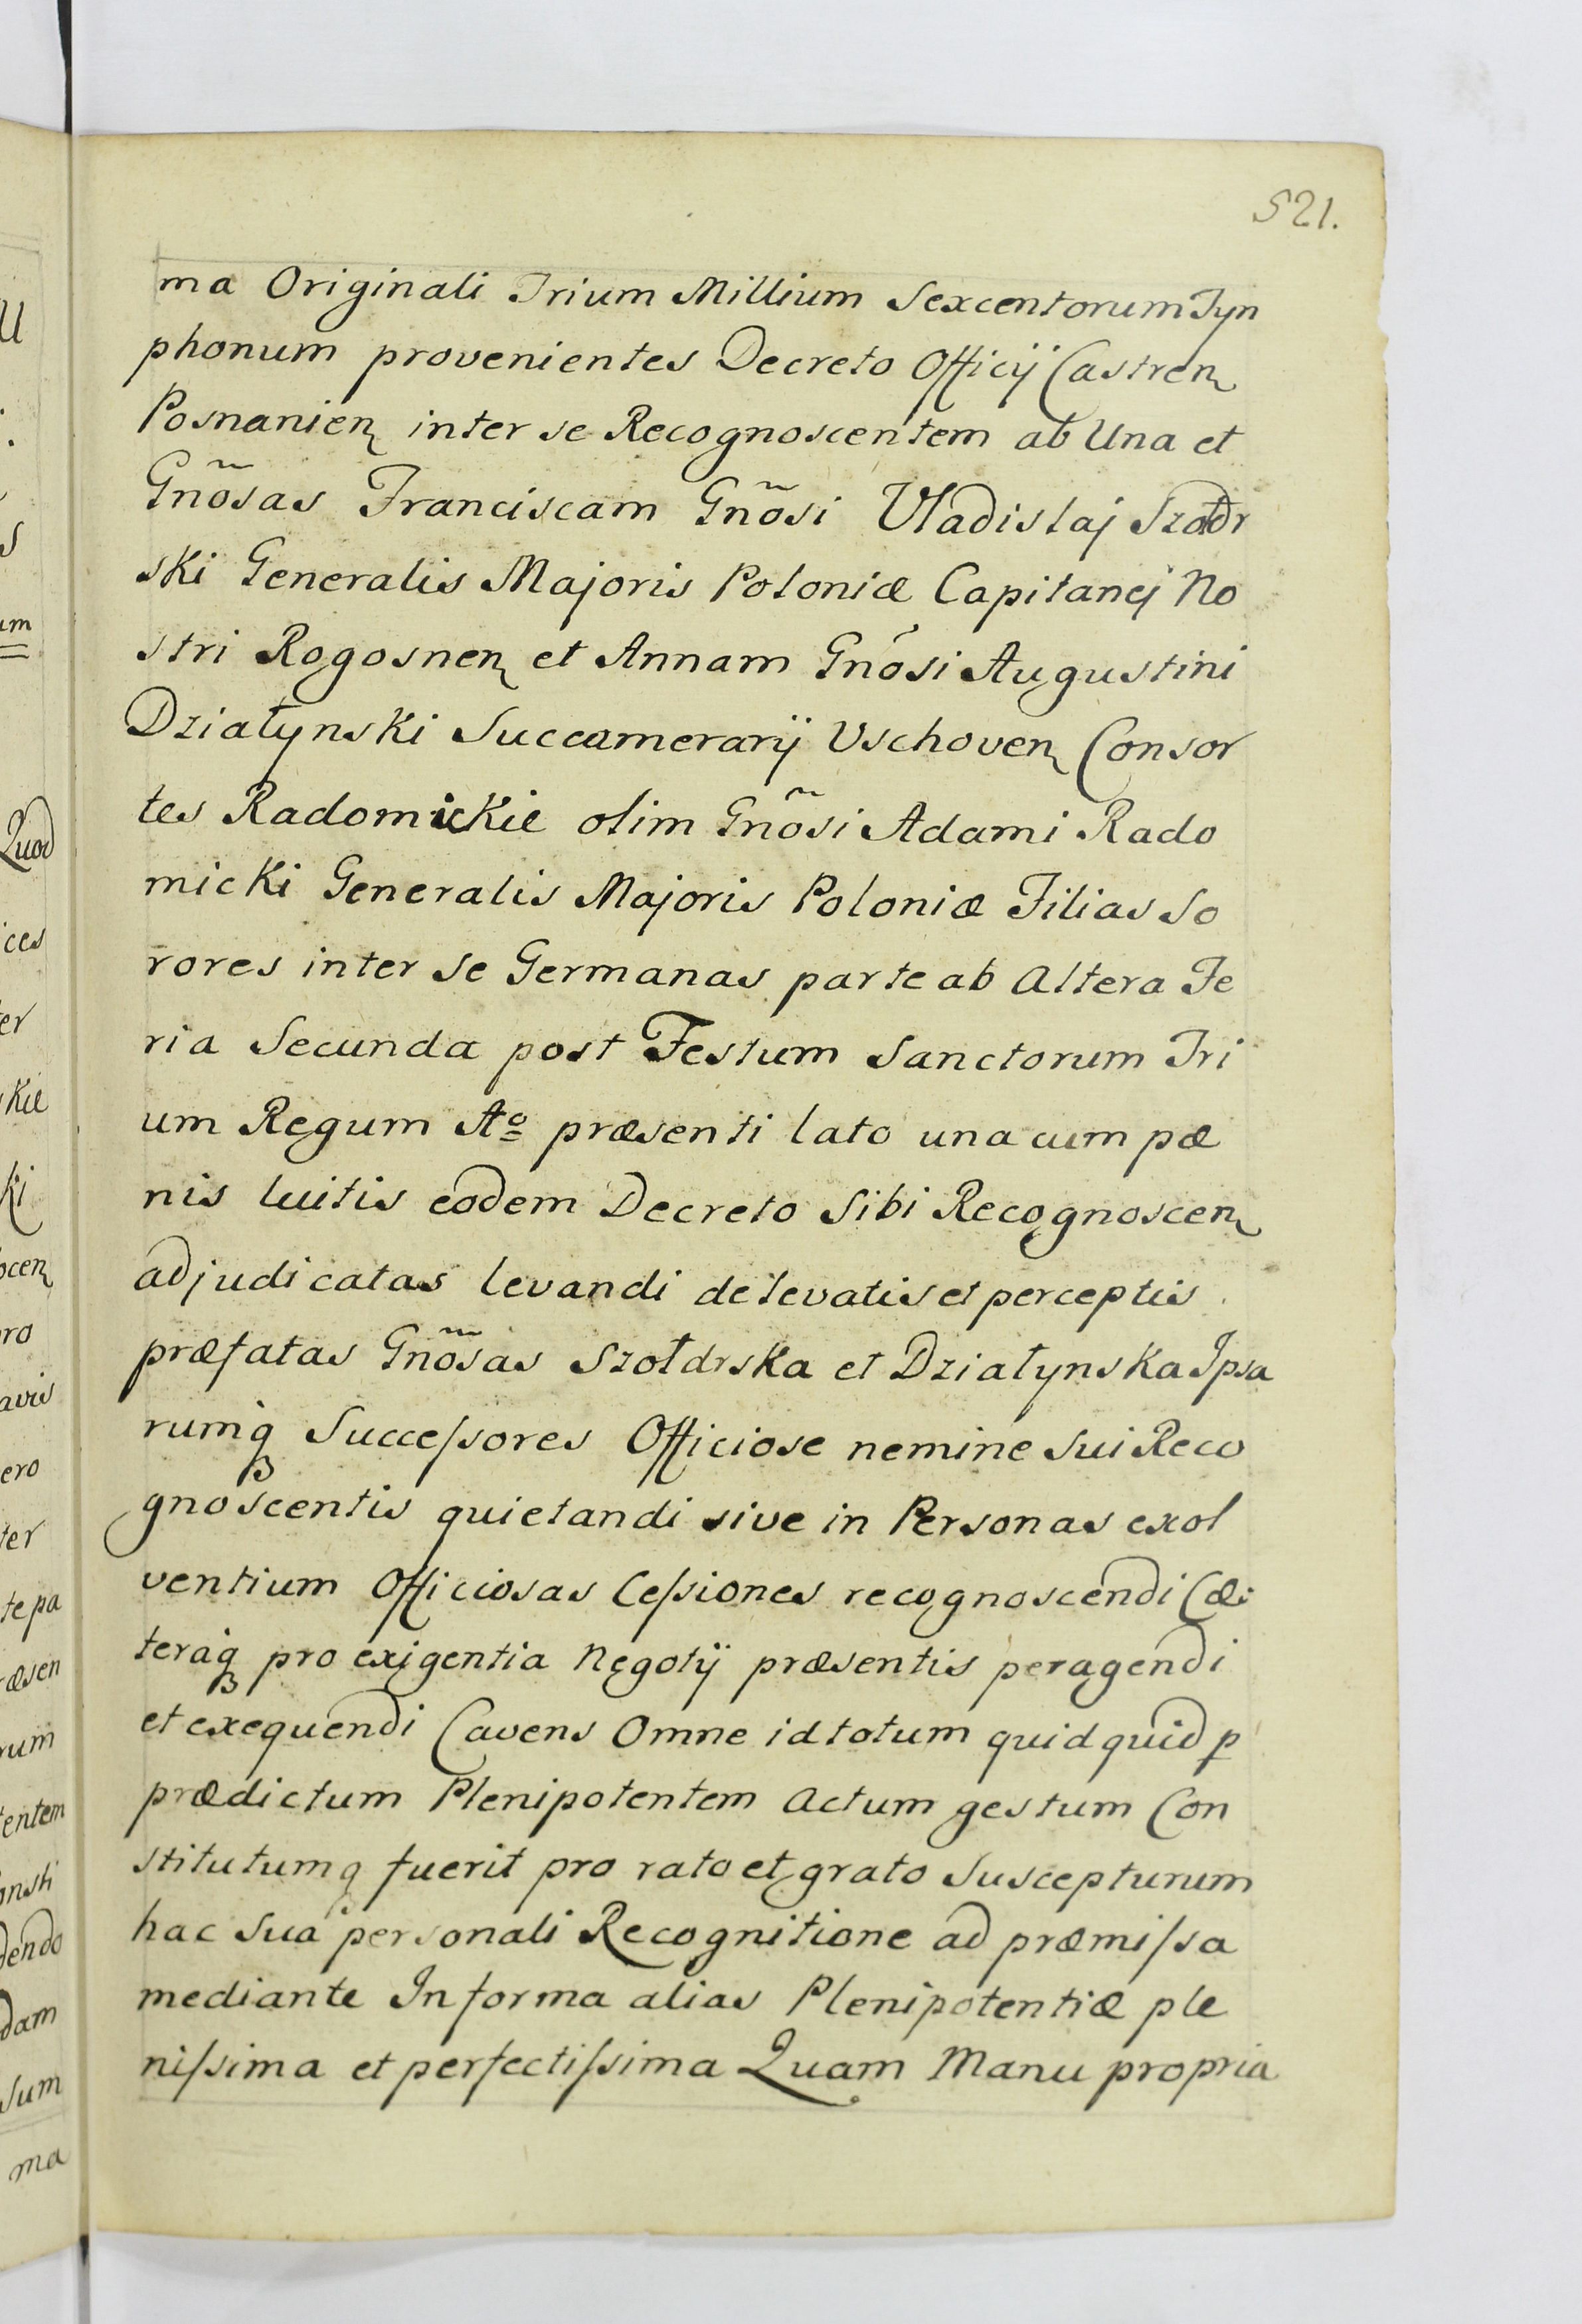 521.
ma Originali Trium Millium Sexcentorum Tyn
phonum provenientes Decreto Officij Castren
Posnanien inter se Recognoscentem ab Una et
Gnõsas Franciscam Gnõsi Vladislaj Szołdr
ski Generalis Majoris Poloniæ Capitanej No
stri Rogosnen et Annam Gnósi Augustini
Działynski Succamerarij Vschoven Consor
tes Radomickie olim Gnõsi Adami Rado
micki Generalis Majoris Poloniæ Filias So
rores inter se Germanas parte ab Altera Fe
ria Secunda post Festum Sanctorum Tri
um Regum Aº præsenti lato una cum pæ
nis luitis eodem Decreto Sibi Recognoscen
adjudicatas levandi de levatis et perceptis
præfatas Gnõsas Szołdrska et Działynska Ipsa
rumq Successores Officiose nemine sui Reco
gnoscentis quietandi sive in Personas exol
ventium Officiosas Cessiones recognoscendi Cæ
teraq pro exigentia Negotij præsentis peragendi
et exequendi Cavens Omne id totum quidquid p
prædictum Plenipotentem actum gestum Con
stitutumq fuerit pro rato et grato Suscepturum
hac Sua personali Recognitione ad præmissa
mediante In forma alias Plenipotentiæ ple
nissima et perfectissima Quam Manu propria